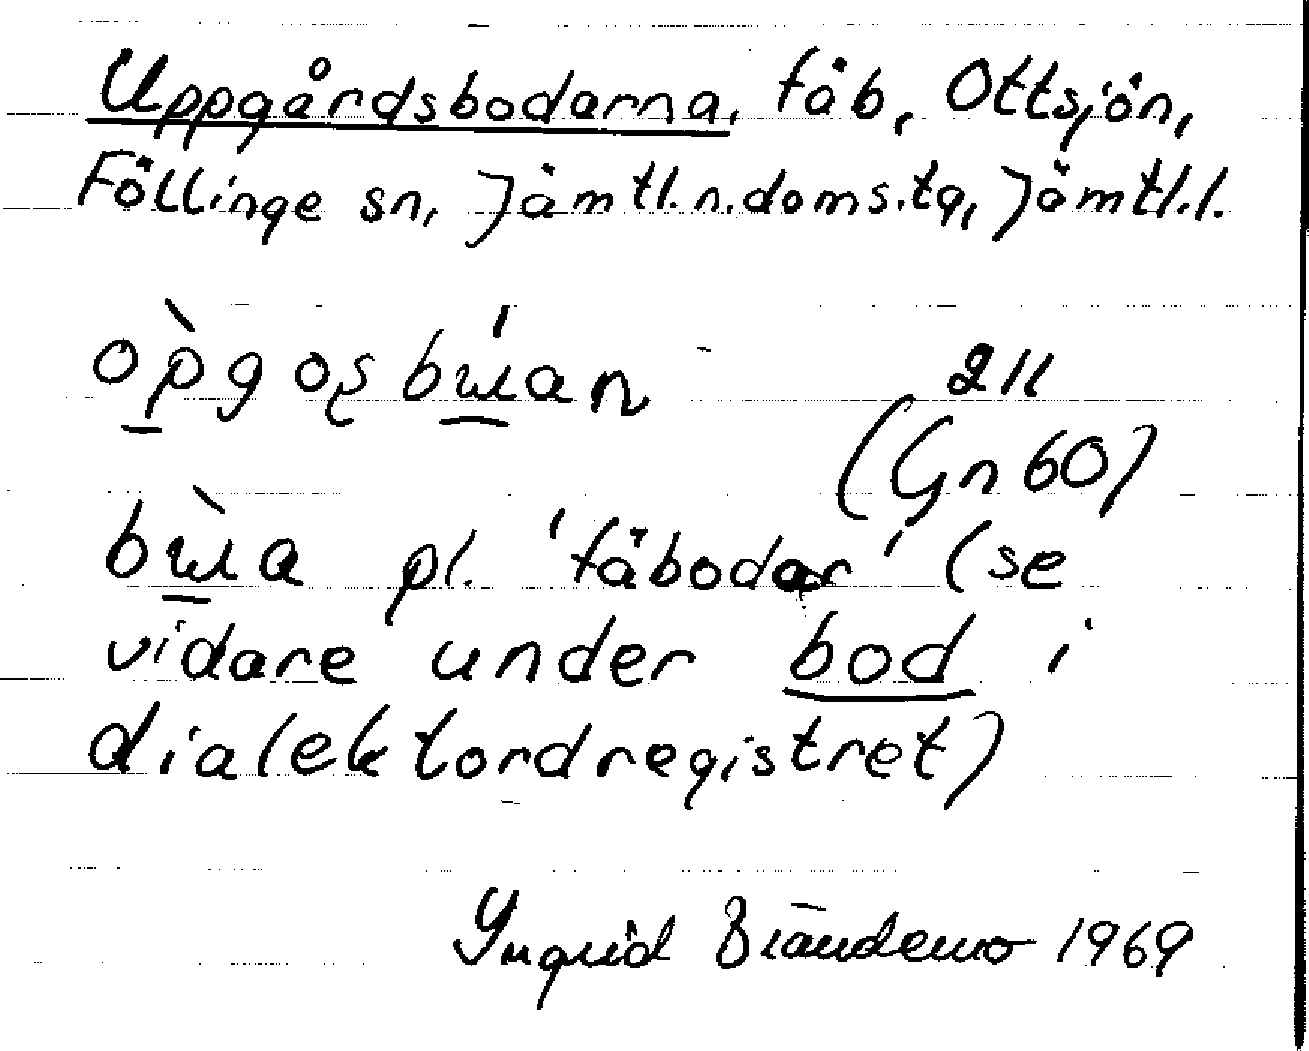 Uppgårdsbodarna, fäb, Ottsjön,
Föllinge sn, Jämtl.n.doms.tg, Jämtl.l.
211
(Gn 60)
pl. 'fäbodar' (se
vidare under bod i
dialektordregistret)
Ingrid 1969